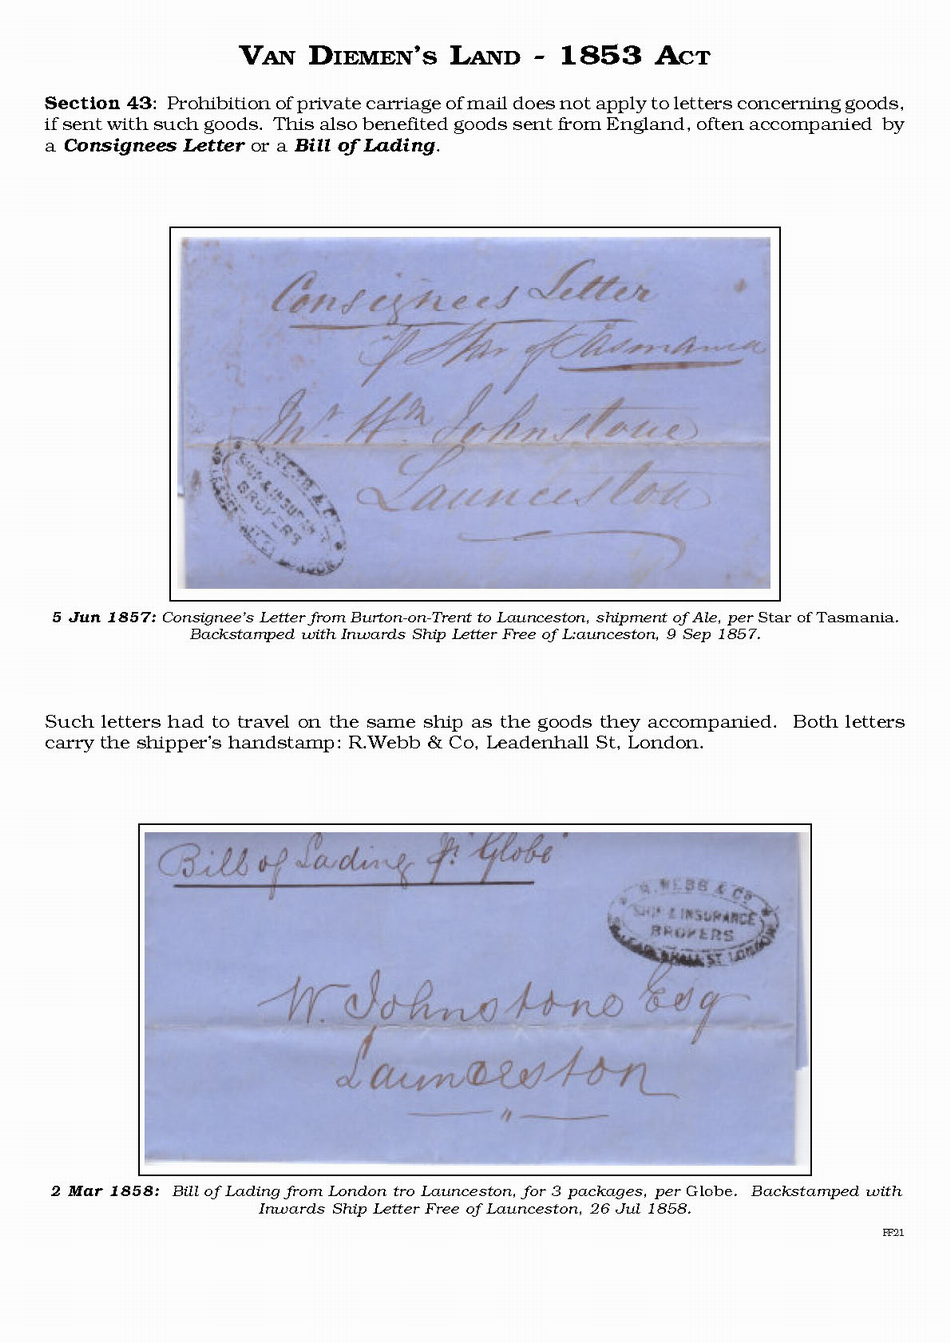 Van Diemen's Land - 1853 Act
Section 43: Prohibition of private carriage of mail does not apply to letters concerning goods,
if sent with such goods. This also benefited goods sent from England, often accompanied by
a Consignees Letter or a Bill of Lading.
Consignees Letter
pr Star of Tasmania
Mr. Wm Johnstone
Launceston
R. WEBB & Co
SHIP & INSURANCE
BROKERS
LEADENHALL ST LONDON
5 Jun 1857: Consignee's Letter from Burton-on-Trent to Launceston, shipment of Ale, per Star of Tasmania.
Backstamped with Inwards Ship Letter Free of L:aunceston, 9 Sep 1857.
Such letters had to travel on the same ship as the goods they accompanied. Both letters
carry the shipper's handstamp: R.Webb & Co, Leadenhall St, London.
Bill of Lading pr. "Globe"
R. WEBB & Co
SHIP & INSURANCE
BROKERS
LEADENHALL ST. LONDON
W. Johnstone Esq
Launceston
2 Mar 1858: Bill of Lading from London tro Launceston, for 3 packages, per Globe. Backstamped with
Inwards Ship Letter Free of Launceston, 26 Jul 1858.
FF21